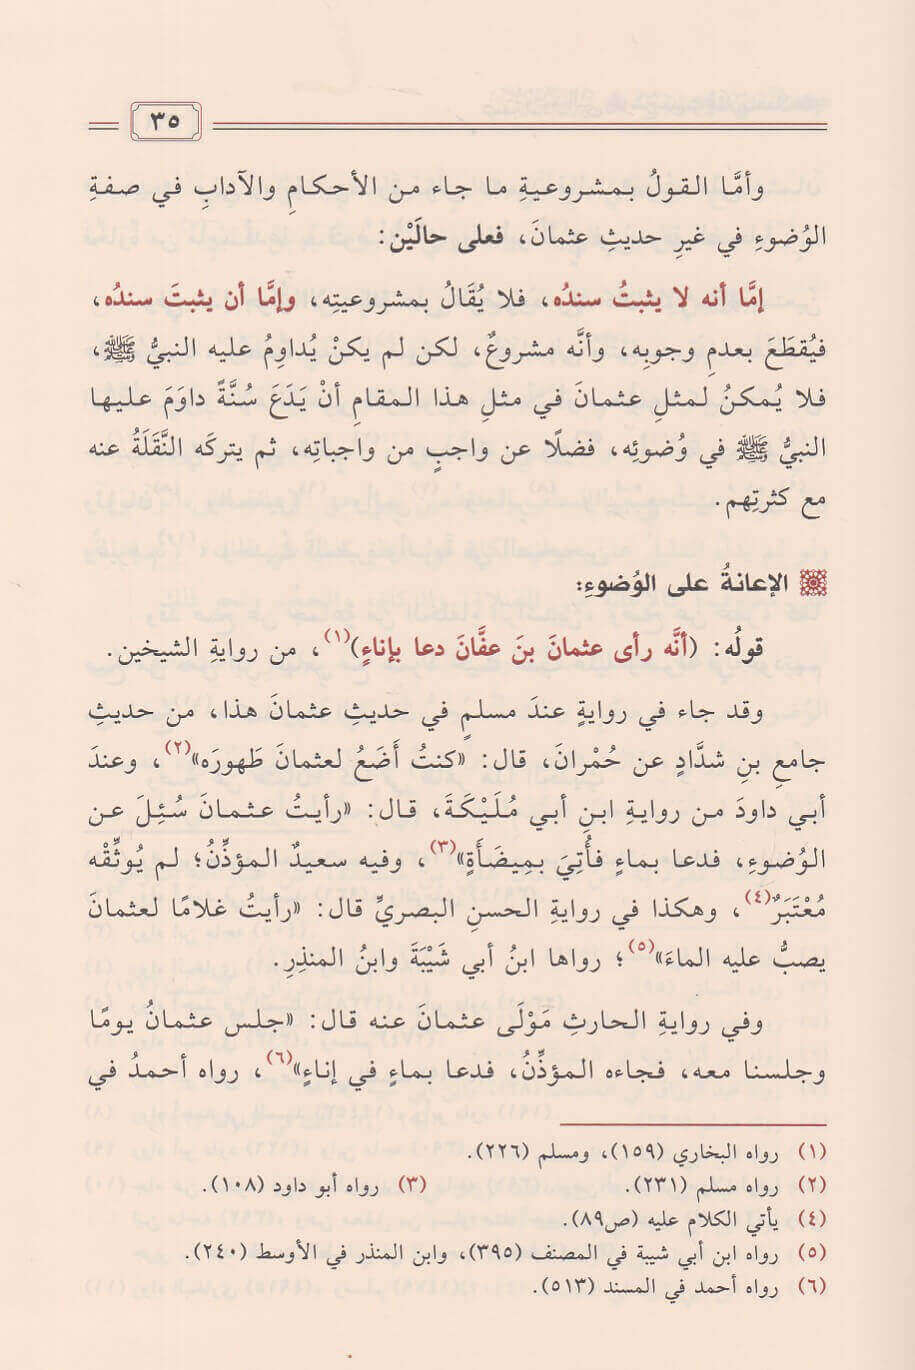 ٣٥
وأمَّا القولُ بمشروعيةِ ما جاء من الأحكامِ والآدابِ في صفةِ
الوُضوءِ في غيرِ حديثِ عثمانَ، فعلى حالَيْن:
إمَّا أنه لا يثبتُ سندُه، فلا يُقَالُ بمشروعيتِه، وإمَّا أن يثبتَ سندُه،
فيُقطَعَ بعدمِ وجوبِه، وأنَّه مشروعٌ، لكن لم يكنْ يُداوِمُ عليه النبيُّ ﷺ،
فلا يُمكنُ لمثلِ عثمانَ في مثلِ هذا المقامِ أنْ يَدَعَ سُنَّةً داوَمَ عليها
النبيُّ ﷺ في وُضوئِه، فضلًا عن واجبٍ من واجباتِه، ثم يتركَه النَّقَلَةُ عنه
مع كثرتِهم.
الإعانةُ على الوُضوءِ:
قولُه: (أنَّه رأى عثمانَ بنَ عفَّانَ دعا بإناءٍ)(١)، من روايةِ الشيخين.
وقد جاء في روايةٍ عندَ مسلمٍ في حديثِ عثمانَ هذا، من حديثِ
جامعِ بنِ شدَّادٍ عن حُمْرانَ، قال: «كنتُ أَضَعُ لعثمانَ طَهورَه»(٢)، وعندَ
أبي داودَ من روايةِ ابنِ أبي مُلَيْكَةَ، قال: «رأيتُ عثمانَ سُئِلَ عن
الوُضوءِ، فدعا بماءٍ فأُتِيَ بمِيضَأَةٍ»(٣)، وفيه سعيدٌ المؤذِّنُ؛ لم يُوثِّقْه
مُعْتَبَرٌ(٤)، وهكذا في روايةِ الحسنِ البصريِّ قال: «رأيتُ غلامًا لعثمانَ
يصبُّ عليه الماءَ»(٥)؛ رواها ابنُ أبي شَيْبَةَ وابنُ المنذِرِ.
وفي روايةِ الحارثِ مَوْلَى عثمانَ عنه قال: «جلس عثمانُ يومًا
وجلسنا معه، فجاءه المؤذِّنُ، فدعا بماءٍ في إناءٍ»(٦)، رواه أحمدُ في
(١) رواه البخاري (١٥٩)، ومسلم (٢٢٦).
(٢) رواه مسلم (٢٣١). (٣) رواه أبو داود (١٠٨).
(٤) يأتي الكلام عليه (ص٨٩).
(٥) رواه ابن أبي شيبة في المصنف (٣٩٥)، وابن المنذر في الأوسط (٢٤٠).
(٦) رواه أحمد في المسند (٥١٣).